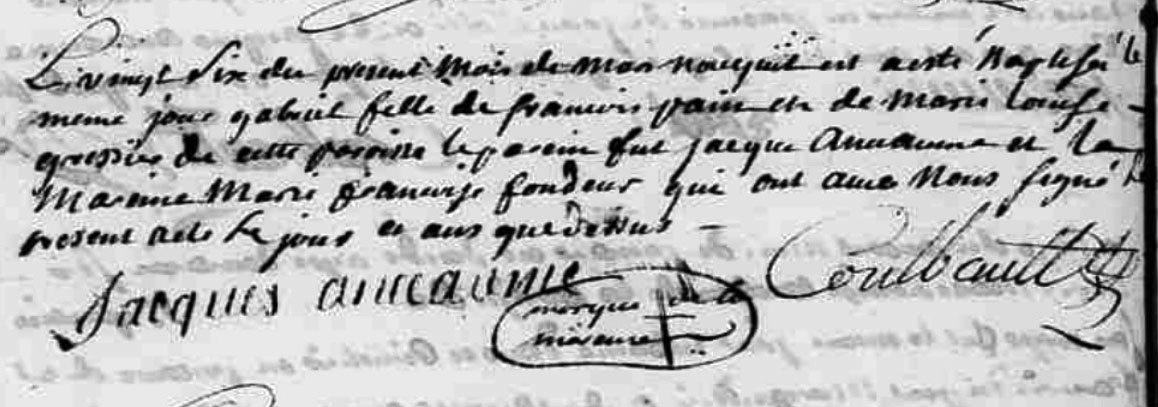 Le vingt Six du present Mois de Mars nacquit et a esté Baptisé le
meme jour gabriel fille de francois pain et de Marie louise
gressier de cette paroisse le parein fut jacque Anceaume et la
Mareine Marie francoise fondeur qui ont avec Nous signé le
present acte le jour et ans que dessus
Jacques anceaume
Coulbault
marque de la
mareine